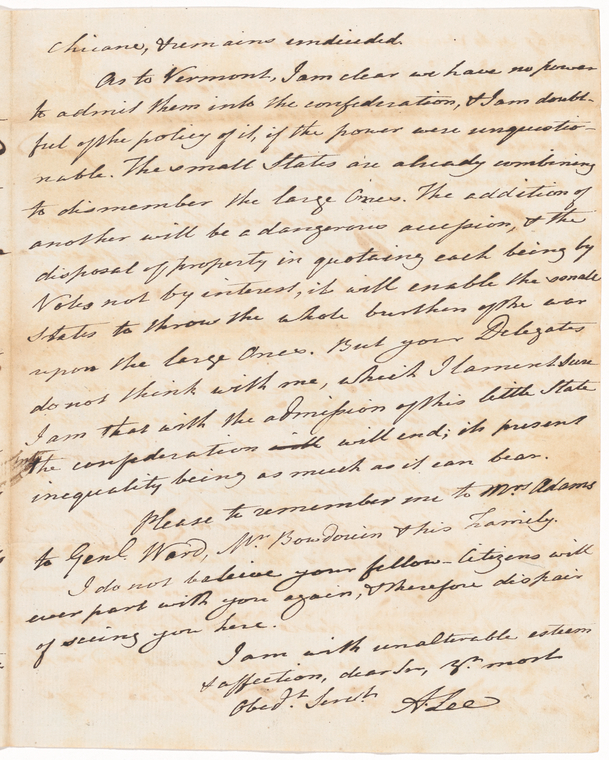 Chicane, & remains undecided.
As to Vermont, I am clear we have no power
to admit them into the confederation, & I am doubt-
ful of the policy of it, if the power were unquestio-
nable. The small States are already combining
to dismember the large Ones. The addition of
another will be a dangerous accession, & the
disposal of property in quotaing each being by
Votes not by interest, it will enable the small
States to throw the whole burthen of the war
upon the large Ones. But your Delegates
do not think with me, which I lament. Sure
I am that with the admission of this little State
the confederation will will end; its present
inequality being as much as it can bear.
Please to remember me to Mrs. Adams
to Genl. Ward, Mr. Bowdouin & his Family.
I do not beleive your fellow-Citizens will
ever part with you again, & therefore dispair
of seeing you here.
I am with unalterable esteem
& affection, dear Sir, yr. most
Obed.t Servt.
A. Lee